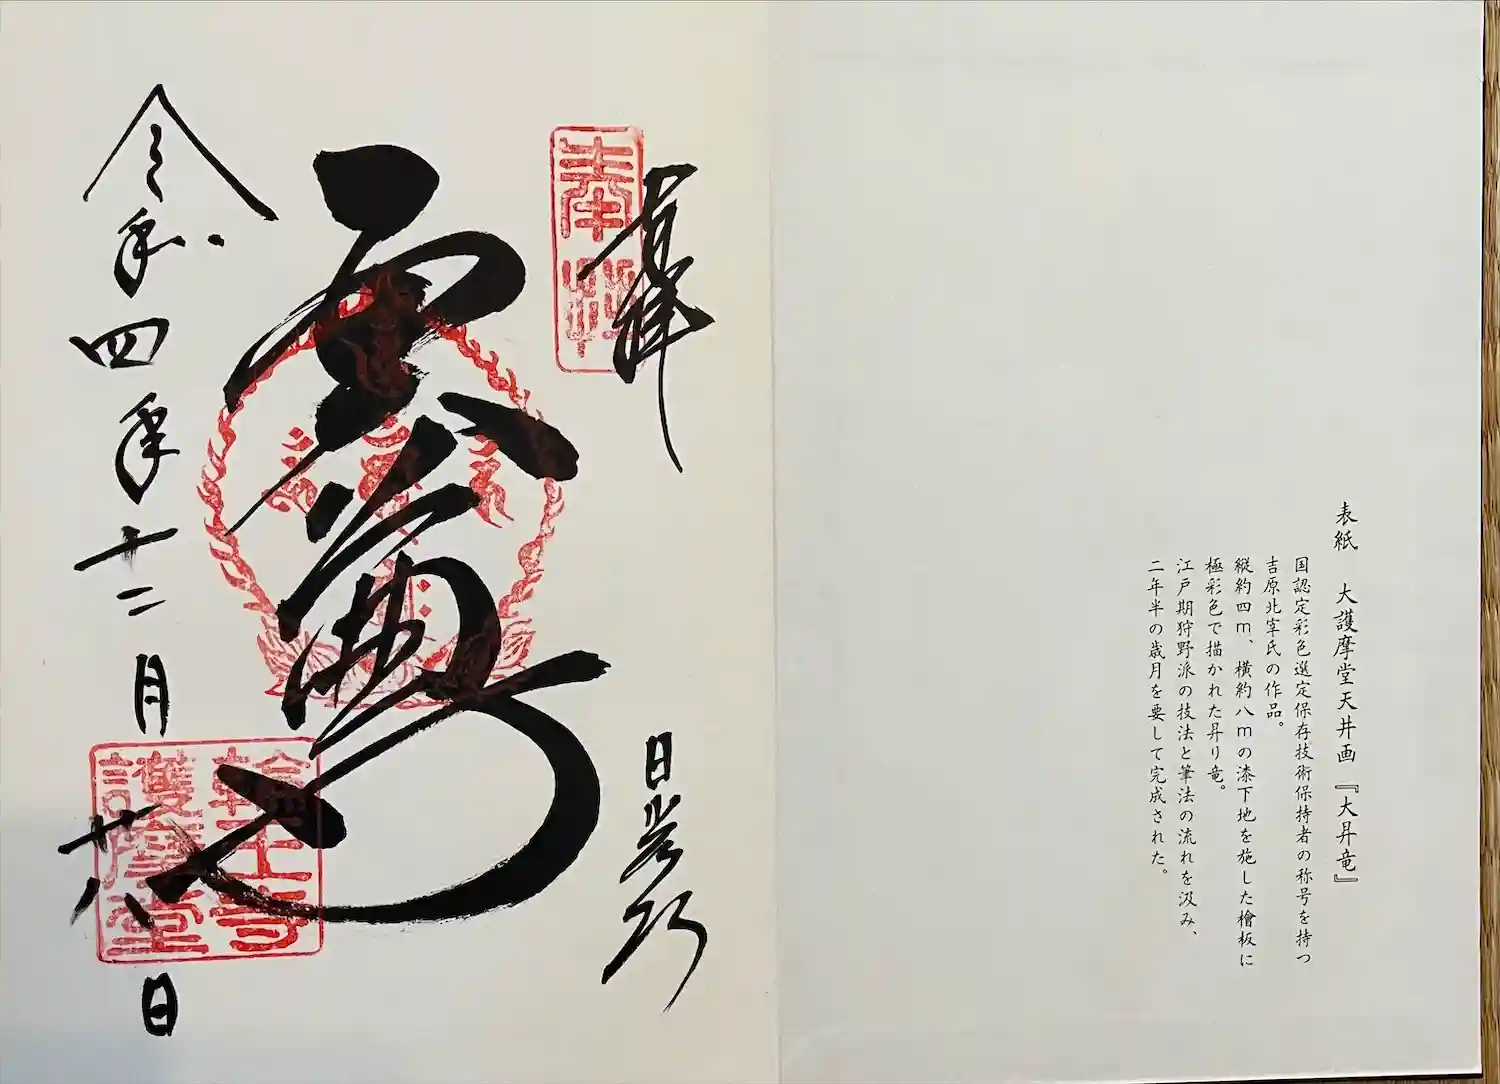 表紙　大護摩堂天井画『大昇竜』
国認定彩色選定保存技術保持者の称号を持つ
吉原北宰氏の作品。
縦約四m、横約八mの漆下地を施した檜板に
極彩色で描かれた昇り竜。
江戸期狩野派の技法と筆法の流れを汲み、
二年半の歳月を要して完成された。
日光山
輪王寺
護摩堂
令和四年十二月廿八日